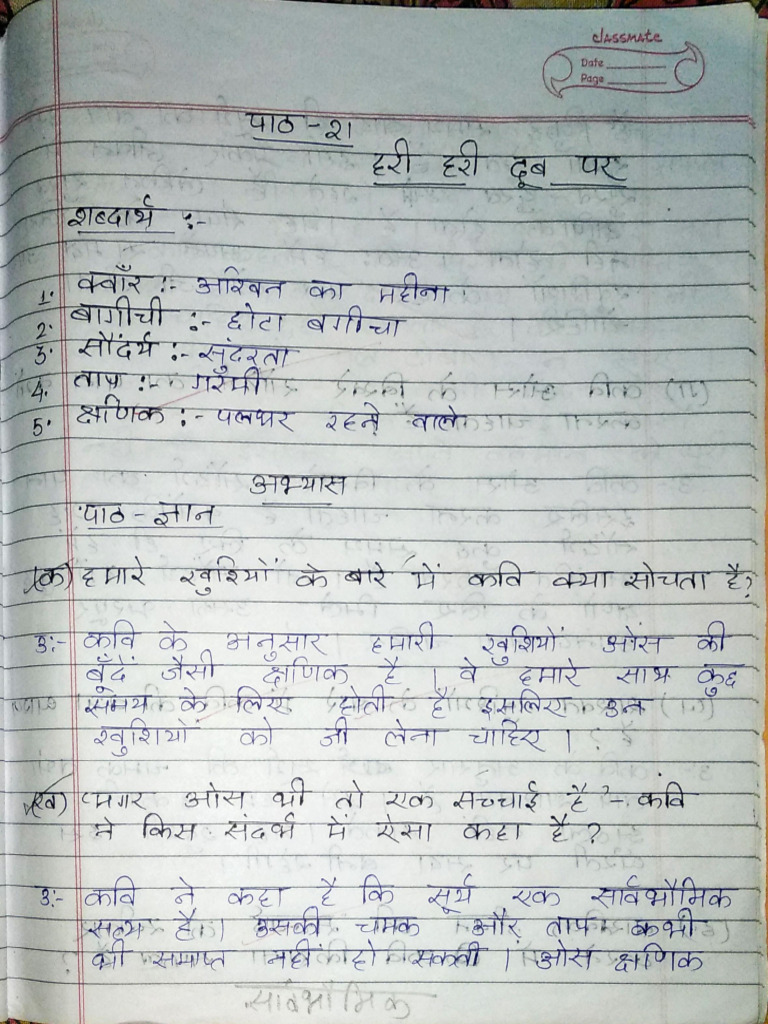 classmate
Date
Page
पाठ - २१
हरी हरी दूब पर
शब्दार्थ :-
1. क्वाँर :- अश्विन का महीना
2. बागीची :- छोटा बगीचा
3. सौंदर्य :- सुंदरता
4. ताप :- गरमी
5. क्षणिक :- पलभर रहने वाले
अभ्यास
पाठ - ज्ञान
(क) हमारे खुशियों के बारे में कवि क्या सोचता है?
उ:- कवि के अनुसार हमारी खुशियाँ ओस की
बूँदें जैसी क्षणिक है। वे हमारे साथ कुछ
समय के लिए होती हैं इसलिए उन
खुशियों को जी लेना चाहिए।
(ख) "मगर ओस भी तो एक सच्चाई है"- कवि
ने किस संदर्भ में ऐसा कहा है?
उ:- कवि ने कहा है कि सूर्य एक सार्वभौमिक
सत्य है। उसकी चमक और ताप कभी
भी समाप्त नहीं हो सकती। ओस क्षणिक
सार्वभौमिक